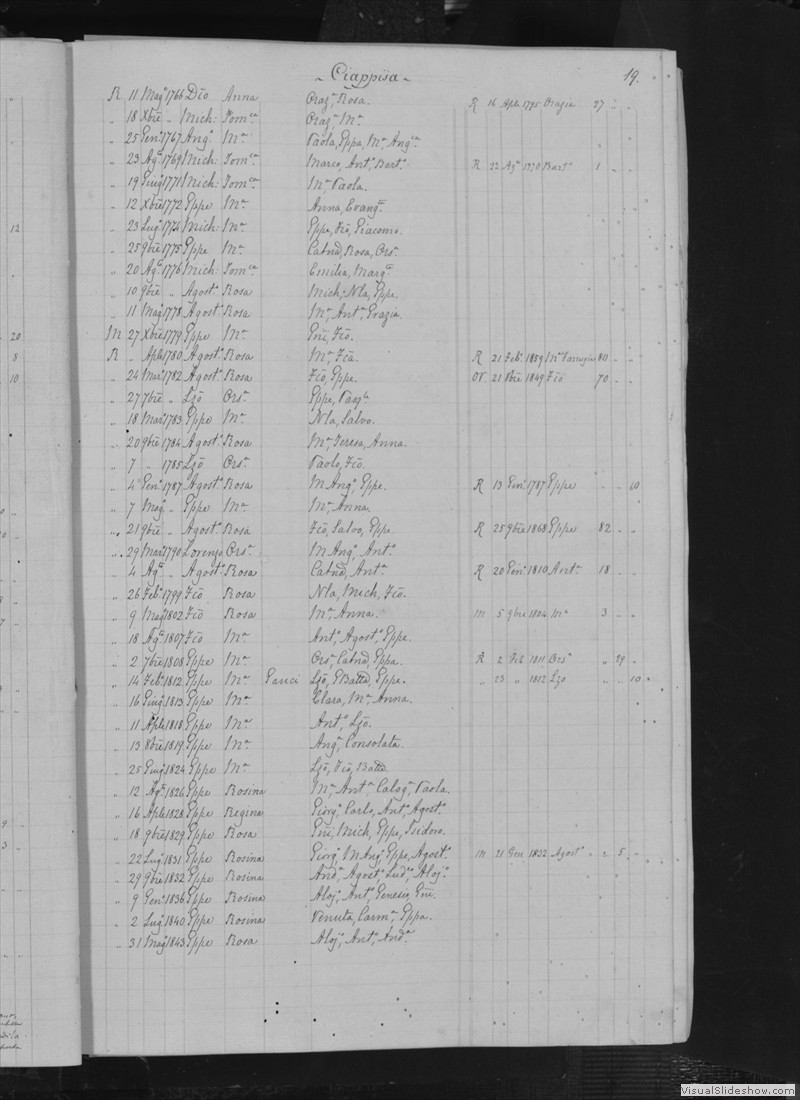 Ciappisa 19.
R 11 Mag° 1766 Dio Anna Oraz.ª, Rosa. R 16 Aple 1795 Orazia 27 " "
" 18 Xbre " Mich: Tom.ca Oraz.ª, M.ª
" 25 Gen° 1767 Ang° M.ª Paola, Eppa, M.ª Ang.ca
" 23 Ag° 1769 Mich: Tom.ca Marco, Ant.° Bart.° R 22 Ag° 1770 Bart° 1 " "
" 19 Giug° 1771 Mich: Tom.ca M.ª Paola.
" 12 Xbre 1772 Eppe M.ª Anna, Evang.ta
" 23 Lug° 1774 Mich: M.ª Eppe, Fco, Giacomo.
" 25 9bre 1775 Eppe M.ª Catnª, Rosa, Ors.ª
" 20 Ag° 1776 Mich: Tom.ca Emilia, Marg.ta
" 10 9bre " Agost° Rosa Mich: Nla, Eppe.
" 11 Mag° 1778 Agost° Rosa M.ª, Ant.ª Grazia.
M 27 Xbre 1779 Eppe M.ª Gni, Fco.
R " Aple 1780 Agost° Rosa M.ª, Fca. R 21 Feb° 1859 Mª 80 " "
" 24 Mar° 1782 Agost° Rosa Fco, Eppe. 21 1849 Fco 70 " "
" 27 7bre " Lzo Ors.ª Eppe,
" 18 Mar° 1783 Eppe M.ª Nla, Salvo.
" 20 9bre 1784 Agost° Rosa M.ª, Teresa, Anna.
" 7 " 1785 Lzo Ors.ª Paolo, Fco.
" 4 Gen° 1787 Agost° Rosa M Ang.ª, Eppe. R 13 Gen° 1787 Eppe " " 10
" 7 Mag° " Eppe M.ª M.ª, Anna.
" 21 9bre " Agost° Rosa Fco, Salvo, Eppe. R 25 9bre 1868 Eppe 82 " "
" 29 Mar° 1790 Lorenzo Ors.ª M Ang.ª, Ant.°
" 4 Ag° " Agost° Rosa Catnª, Ant.ª R 20 Gen° 1810 Ant.ª 18 " "
" 26 Feb° 1799 Fco Rosa Nla, Mich, Fco.
" 9 Mag° 1802 Fco Rosa M.ª, Anna. m 5 9bre 1804 Mª 3 " "
" 18 Ag° 1807 Fco M.ª Ant.°, Agost°, Eppe.
" 2 7bre 1808 Eppe M.ª Ors.ª, Catnª, Eppa. R 2 Feb 1811 Ors.ª " 29 "
" 14 Feb° 1812 Eppe M.ª Pauci Lzo, GBatta, Eppe. " 23 " 1812 Lzo " " 10
" 16 Giug° 1813 Eppe M.ª Clara, M.ª Anna.
" 11 Aple 1818 Eppe M.ª Ant.°, Lzo.
" 13 8bre 1819 Eppe M.ª Ang.ª, Consolata.
" 25 Giug° 1824 Eppe M.ª Lzo, Fco, Batta
" 12 Ag° 1826 Eppe Rosina M.ª, Ant.ª Calog.ª, Paola.
" 16 Aple 1828 Eppe Regina Giorg.°, Carlo, Ant.°, Agost°
" 18 9bre 1829 Eppe Rosa Gni, Mich, Eppe, Isidoro.
" 22 Lug° 1831 Eppe Rosina Giorg.°, M Ang.°, Eppe, Agost° m 21 Gen 1832 Agost° " 5 "
" 29 9bre 1832 Eppe Rosina And.ª, Agost° Lud.°, Aloj.°
" 9 Gen° 1836 Eppe Rosina Aloj.°, Ant.°, Genesio, Gni.
" 2 Lug° 1840 Eppe Rosina Venuta, Carm.ª, Eppa.
" 31 Mag° 1843 Eppe Rosa Aloj.°, Ant.°, And.ª
12
20
8
10
VisualSlideshow.com